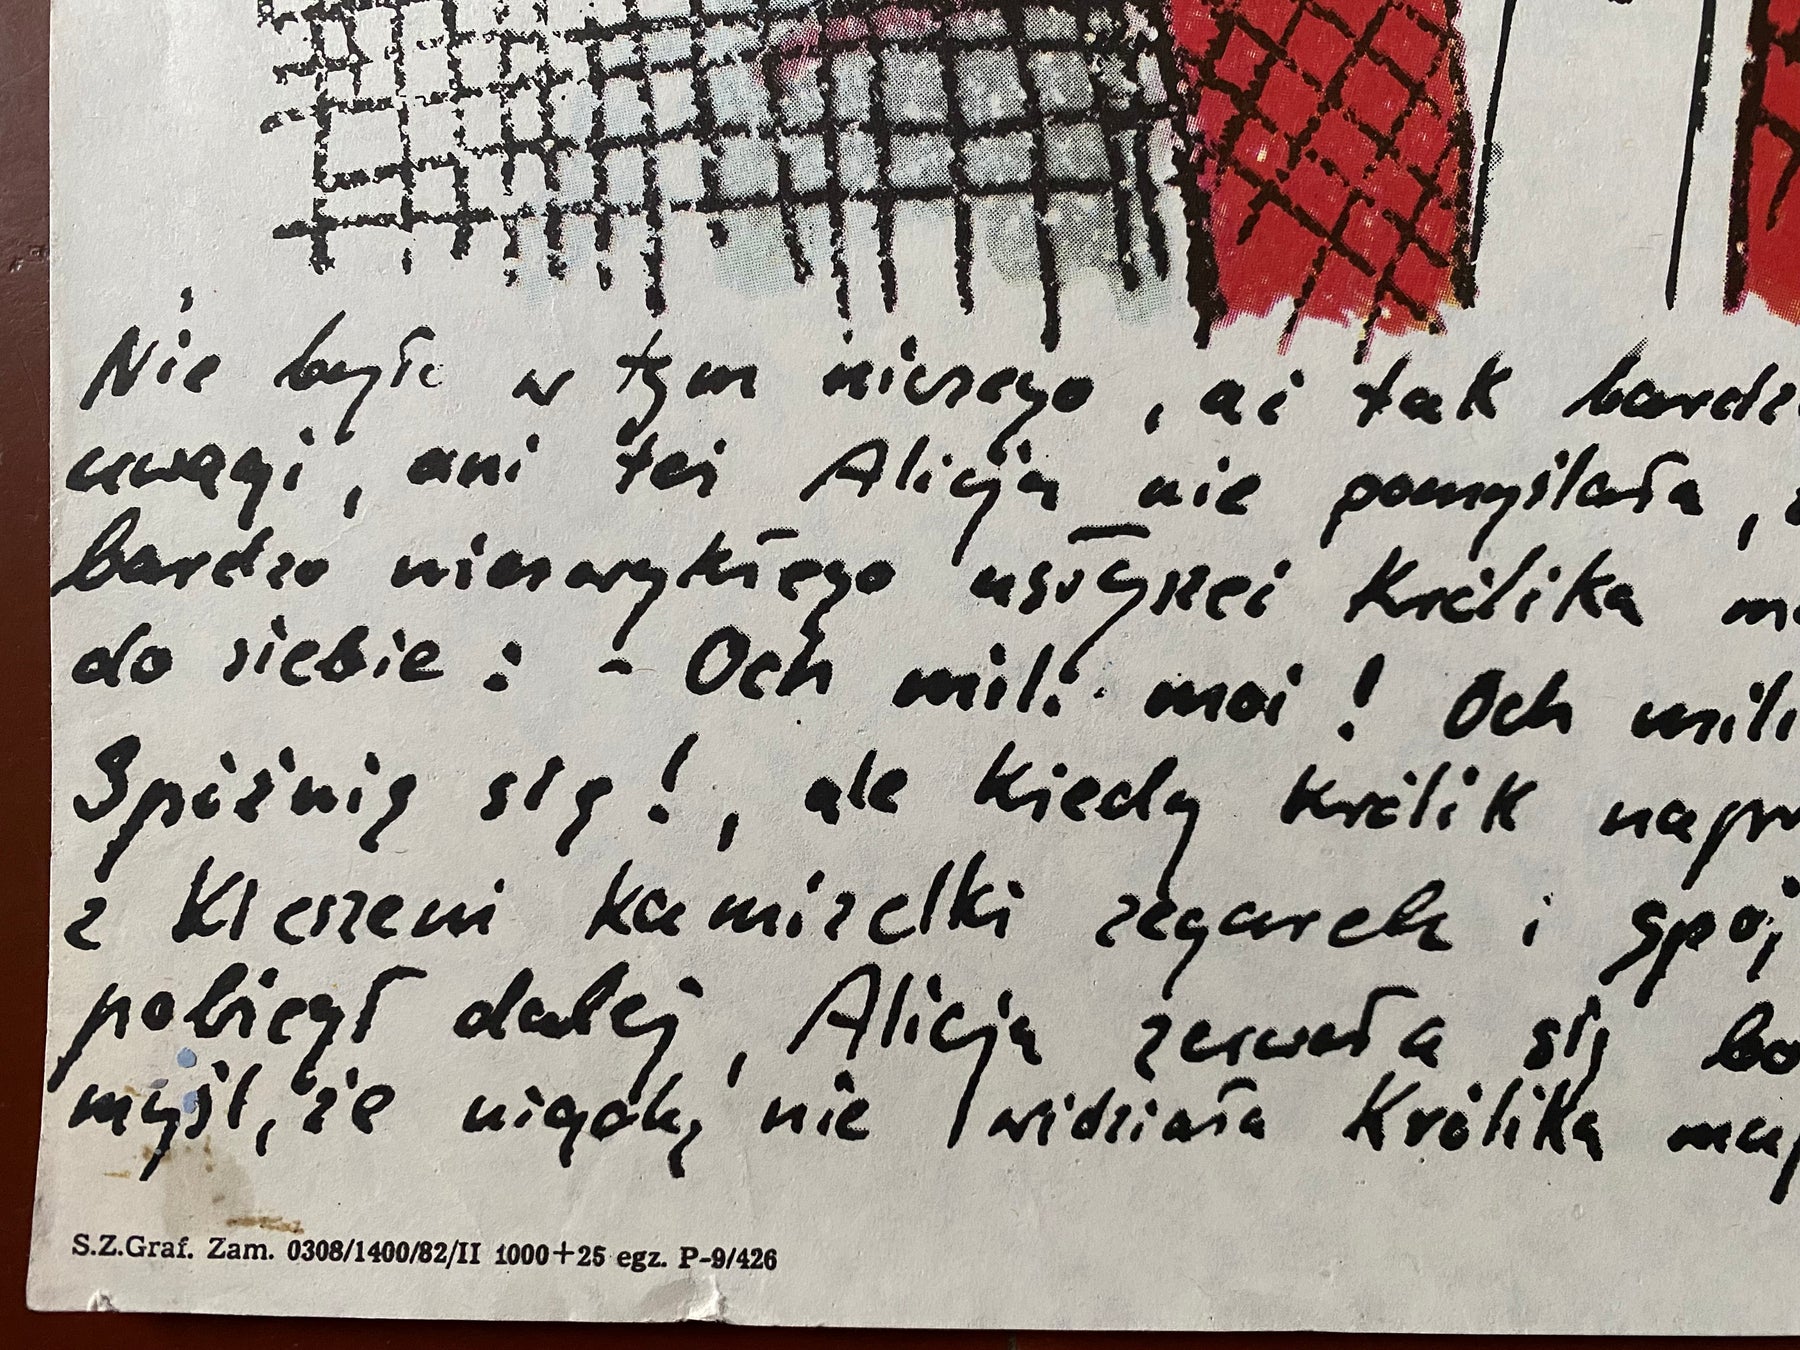 Nie było w tym niczego, aż tak bardz
uwagi, ani też Alicja nie pomyślała,
bardzo niezwykłego usłyszeć Królika
do siebie: - Och mili moi! Och mili
Spóźnię się!, ale kiedy królik
z kieszeni kamizelki zegarek i
pobiegł dalej, Alicja zerwała się bo
myśl, że nigdy nie widziała Królika
S.Z.Graf. Zam. 0308/1400/82/II 1000+25 egz. P-9/426